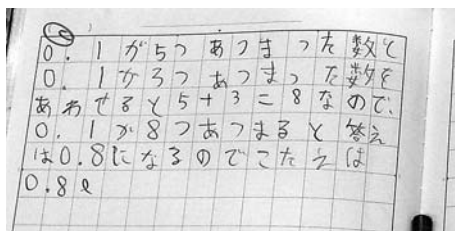 0.1が5つあつまった数と
0.1が3つあつまった数を
あわせると5+3=8なので、
0.1が8つあつまると答え
は0.8になるのでこたえは
0.8ℓ